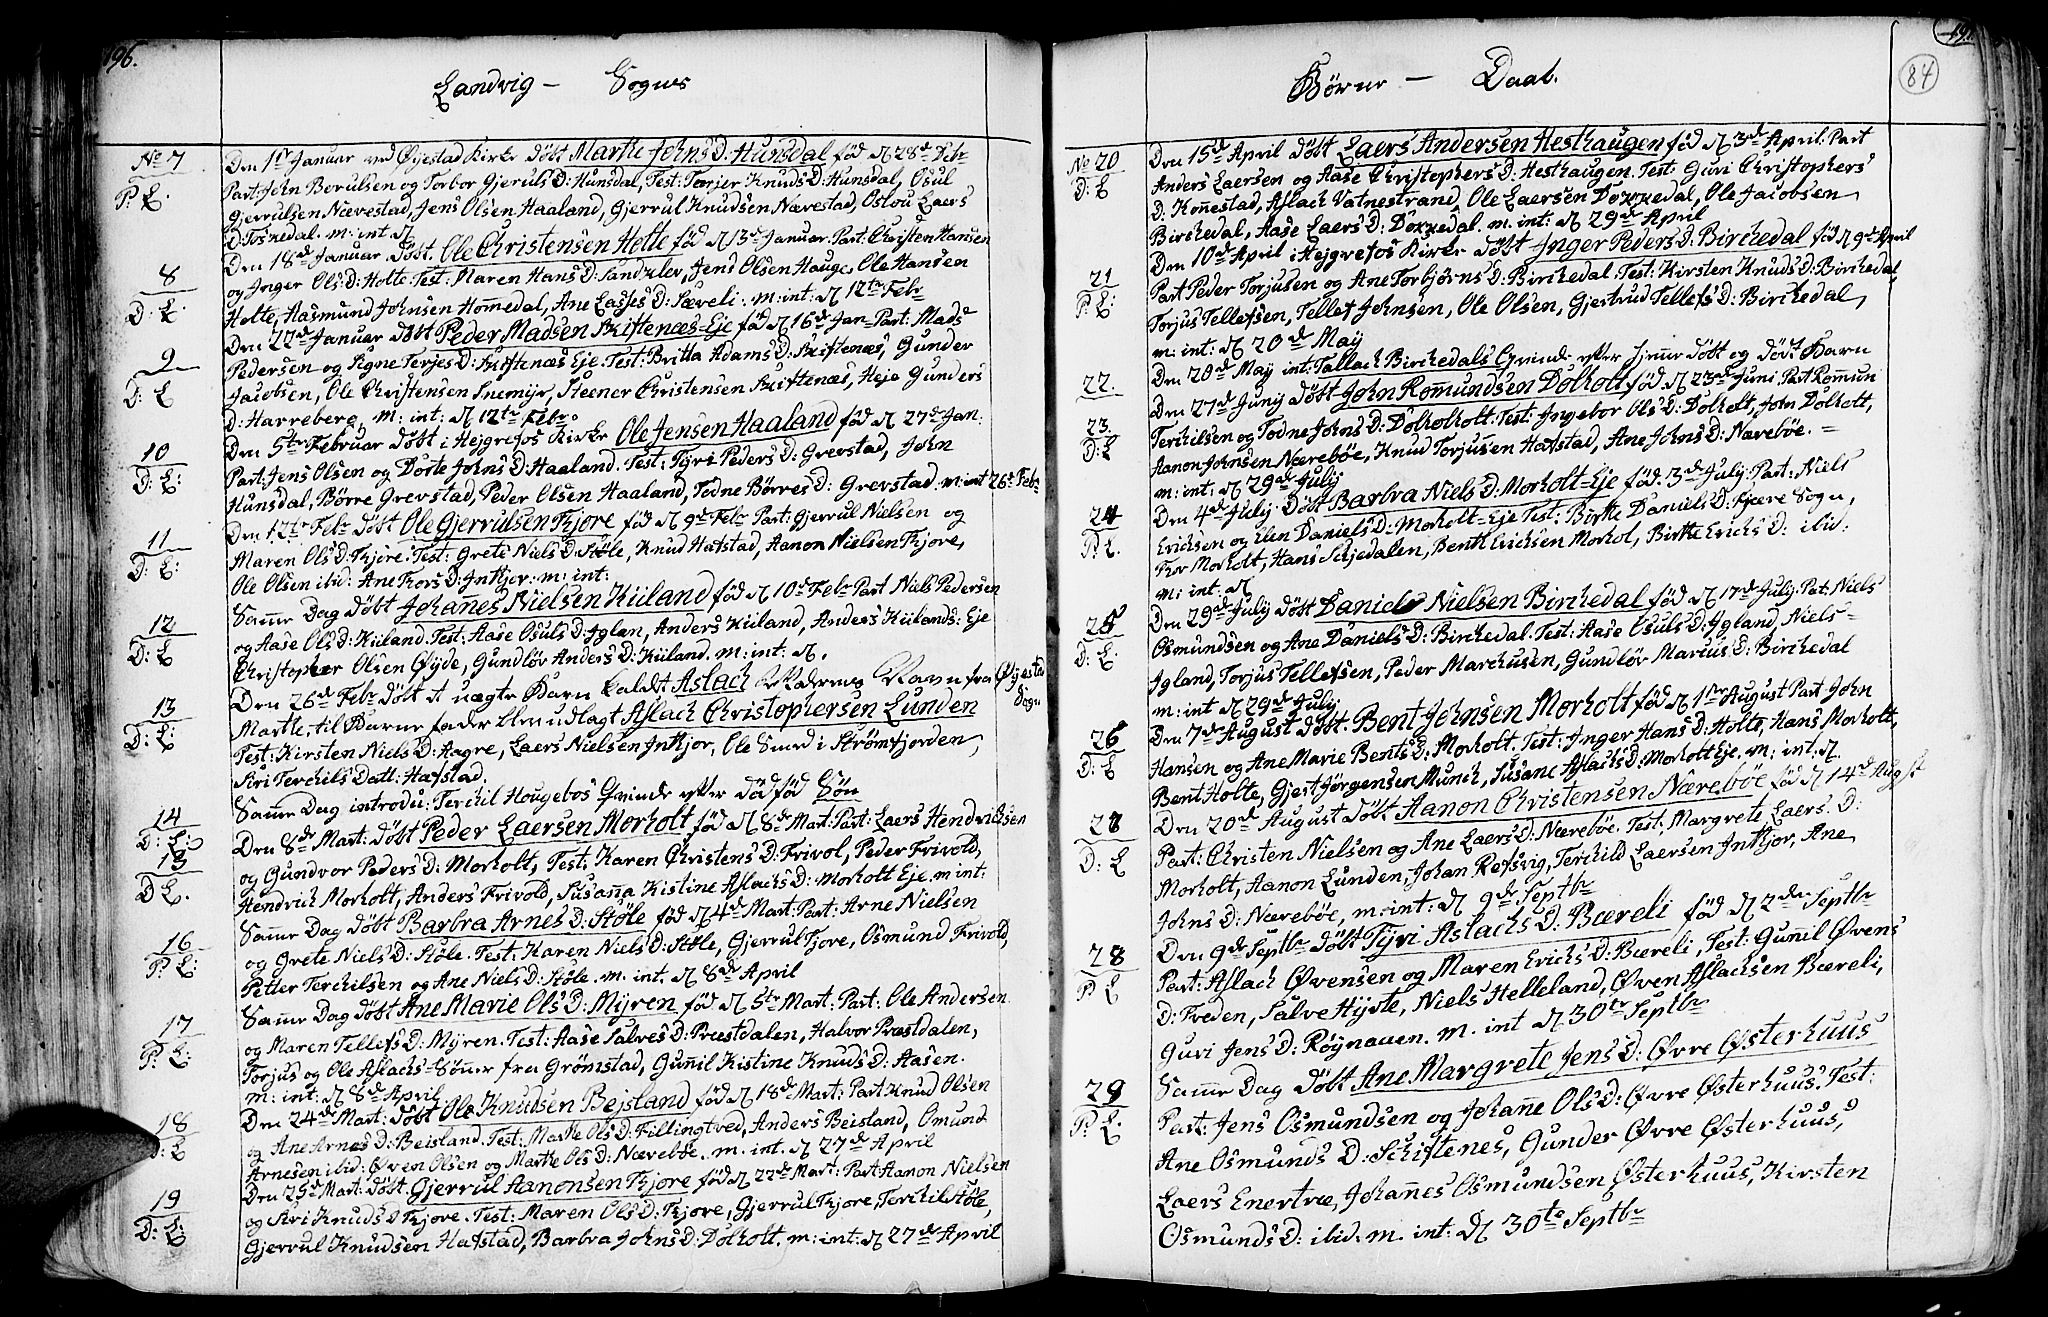 196.
Landvig – Sogns
No 7
P: L.
Den 1ste Januar ved Øjestad Kirke døbt Marthe Johns D: Hunsdal fød d 28de Debr
Part: John Borulsen og Torbor Gjeruls D: Hunsdal, Test: Torjer Knuds D: Hunsdal, Osul
Gjerrulsen Nævestad, Jens Olsen Haaland, Gjerrul Knudsen Nævestad, Oslou Laers
D: m: int d
8
D: L:
Den 18de Januar døbt. Ole Christensen Holte fød d 13de Januar. Part: Christen Hansen
og Inger Ols D: Holte Test: Maren Hans D: Sandklev, Jens Olsen Hauge, Ole Hansen
Holte, Aasmund Johnsen Homedal, Ane Lasses D: Sæveli: m: int: d 12te Febr
9
D: L
Den 22de Januar døbt Peder Madsen Skiftenæs=Eje fød d 16de Jan= Part: Mads
Pedersen og Signe Terjes D: Skiftenæs Eje. Test: Britta Adams D: Skiftenæs, Gunder
Jacobsen, Ole Christensen Snemijr, Steener Christensen Skiftenæs, Heje Gunders
D: Harreberg, m: int: d 12te Febr.
10
D: L:
Den 5te Februar døbt i Hejgrefos Kirke Ole Jensen Haaland fød d 27de Jan:
Part: Jens Olsen og Dorte Johns D: Haaland. Test: Tyri Peders D: Grevstad, John
Hunsdal, Børre Grevstad, Peder Olsen Haaland, Todne Børres D: Grevstad. m: int 26de Febr
11
D: L:
Den 12te Febr døbt Ole Gjerrulsen Fjore fød d 9de Febr Part: Gjerrul Nielsen og
Maren Ols D: Fjore. Test: Grete Niels D: Støle, Knud Hafstad, Aanon Nielsen Fjore,
Ole Olsen ibid: Ane Thors D: Intjor. m: int:
12
D: L
Samme Dag døbt Johannes Nielsen Kiiland fød d 10de Febr Part Niels Pedersen
og Aase Ols D: Kiiland. Test: Aase Osuls D: Iglan, Anders Kiiland, Anders Kiilands: Eje
Christopher Olsen Øyde, Gundlør Anders D: Kiiland. m: int: d.
13
D: L:
Den 26de Febr døbt et uægte Barn kaldt Aslach Navn fra Øjestad Sogn
Marthe, til Barnefader blev udlagt Aslach Christophersen Lunden
Test: Kirsten Niels D: Aagre, Laers Nielsen Intjor, Ole Smed i Strømfjorden,
Siri Terchils Datt: Hafstad.
14
D: L:
Samme Dag introdu: Terchil Hougebos Qvinde efter dødfød Søn
15
D L.
Den 8de Mart: døbt Peder Laersen Morholt fød d 8de Mart: Part: Laers Hendrichsen
og Gundvor Peders D: Morholt, Test: Karen Christens D: Frivol, Peder Frivold,
Hendrich Morholt, Anders Frivold, Susanna Kistine Aslachs D: Morholt Eje. m int:
16
P: L:
Samme Dag døbt Barbra Arnes D: Støle fød d 4de Mart: Part: Arne Nielsen
og Grete Niels D: Støle. Test: Karen Niels D: Støle, Gjerrul Fjore, Osmund Frivold,
Petter Terchilsen og Ane Niels D: Støle. m. int. d 8de April
17
P. L:
Samme Dag døbt Ane Marie Ols D: Myren fød d 5te Mart: Part: Ole Andersen
og Maren Tellefs D: Myren. Test: Aase Salves D: Præstdalen, Halvor Præstdalen,
Torjus og Ole Aslachs=Sønner fra Grømstad, Gunnil Kistine Knuds D: Aasen.
m: int: d 8de April
18
D: L
Den 24de Mart: døbt Ole Knudsen Bejsland fød d 18de Mart: Part Knud Olsen
og Ane Arnes D: Beisland. Test: Marthe Ols D: Fillingtved, Anders Beisland, Omund
Arnesen ibid: Øven Olsen og Marthe Ols D: Nærebøe. m. int. d 27de April
19
D: L:
Den 25de Mart: døbt Gjerrul Aanonsen Fjore fød d 22de Mart: Part: Aanon Nielsen
og Siri Knuds D Fjore. Test: Maren Ols D: Fjore, Gjerrul Fjore, Terchil Støle,
Gjerrul Knudsen Hafstad, Barbra Johns D: Dolholt. m: int: d 27de April
84
Børne – Daab.
No 20
D: L
Den 15de April døbt Laers Andersen Hesthaugen fød d 3de April: Part
Anders Laersen og Aase Christophers D: Hesthaugen. Test: Guri Christophers
D: Konnestad, Aslach Vatnestrand, Ole Laersen Døkkedal, Ole Jacobsen
Birchedal, Aase Laers D: Døkkedal. m. int: d 29de April
21
P. L:
Den 10de April i Hejgrefos Kirke døbt Inger Peders D: Birchedal fød d 9de April
Part Peder Torjusen og Ane Torbjørns D: Birchedal: Test: Kirsten Knuds D: Birchedal,
Torjus Tellefsen, Tellef Johnsen, Ole Olsen, Gjertrud Tellefs D: Birchedal,
m: int: d 20de May
22.
Den 20de May int: Tallach Birchedals Qvinde efter hjemme døbt og død Barn
23.
D: L
Den 27de Junij døbt John Rommundsen Dolholt fød d 23de Juni Part Rommun
Terchilsen og Todne Johns D: Dolholt: Test: Ingebor Ols D: Dolholt, John Dolholt,
Aanon Johnsen Nærebøe, Knud Torjussen Hafstad, Ane Johns D: Nærebøe. =
m: int: d 29de Julij
24
P. L.
Den 4de Julij døbt Barbra Niels D: Morholt=Eje fød. 3de Julij Part: Niels
Erichsen og Elen Daniels D: Morholt=Eje Test: Birthe Daniels D: Fjære Sogn,
Thor Morholt, Hans Schjedalen, Benth Erichsen Morhol, Birthe Erichs D: ibid:
m: int: d
25
D: L.
Den 29de Julij døbt Daniel Nielsen Birchedal fød d 17de Julij Part: Niels
Osmundsen og Ane Daniels D: Birchedal. Test: Aase Osuls D: Igland, Niels=
Igland, Torjus Tellefsen, Peder Marchusen, Gundlør Marius D: Birchedal
m: int d 29de Julij
26
D: L
Den 7de August døbt. Bent Johnsen Morholt fød d 1ste August Part John
Hansen og Ane Marie Bents D: Morholt. Test: Inger Hans D: Holte, Hans Morholt,
Bent Holte, Gjert Jørgensen Munch, Susane Aslachs D: Morholt Eje. m: int: d.
27
D: L
Den 20de August døbt Aanon Christensen Nærebøe fød d 14de Augst
Part: Christen Nielsen og Ane Laers D: Nærebøe. Test: Margrete Laers: D:
Morholt, Aanon Lunden, Johan Refsvig, Terchild Laersen Intjor, Ane
Johns D: Nærebøe, m: int: d 9de Septbr
28
P L
Den 9de Septbr døbt Tyri Aslachs D: Bæreli fød d 2den Septbr
Part: Aslach Øvensen og Maren Erichs D: Bæreli, Test: Gunnil Øvens
D: Freden, Salve Hyste, Niels Helleland, Øven Aslachsen Bæreli,
Guri Jens D: Røynauen. m. int d 30te Septbr
29
P: L.
Samme Dag døbt Ane Margrete Jens D: Øvre Østerhuus
Part: Jens Osmundsen og Johanne Ols D: Øvre Østerhuus. Test:
Ane Osmunds D: Schiftenes, Gunder Øvre Østerhuus,
Laers Enertræ, Johannes Osmundsen Østerhuus, Kirsten
Osmunds D: ibid. m. int: d 30te Septbr